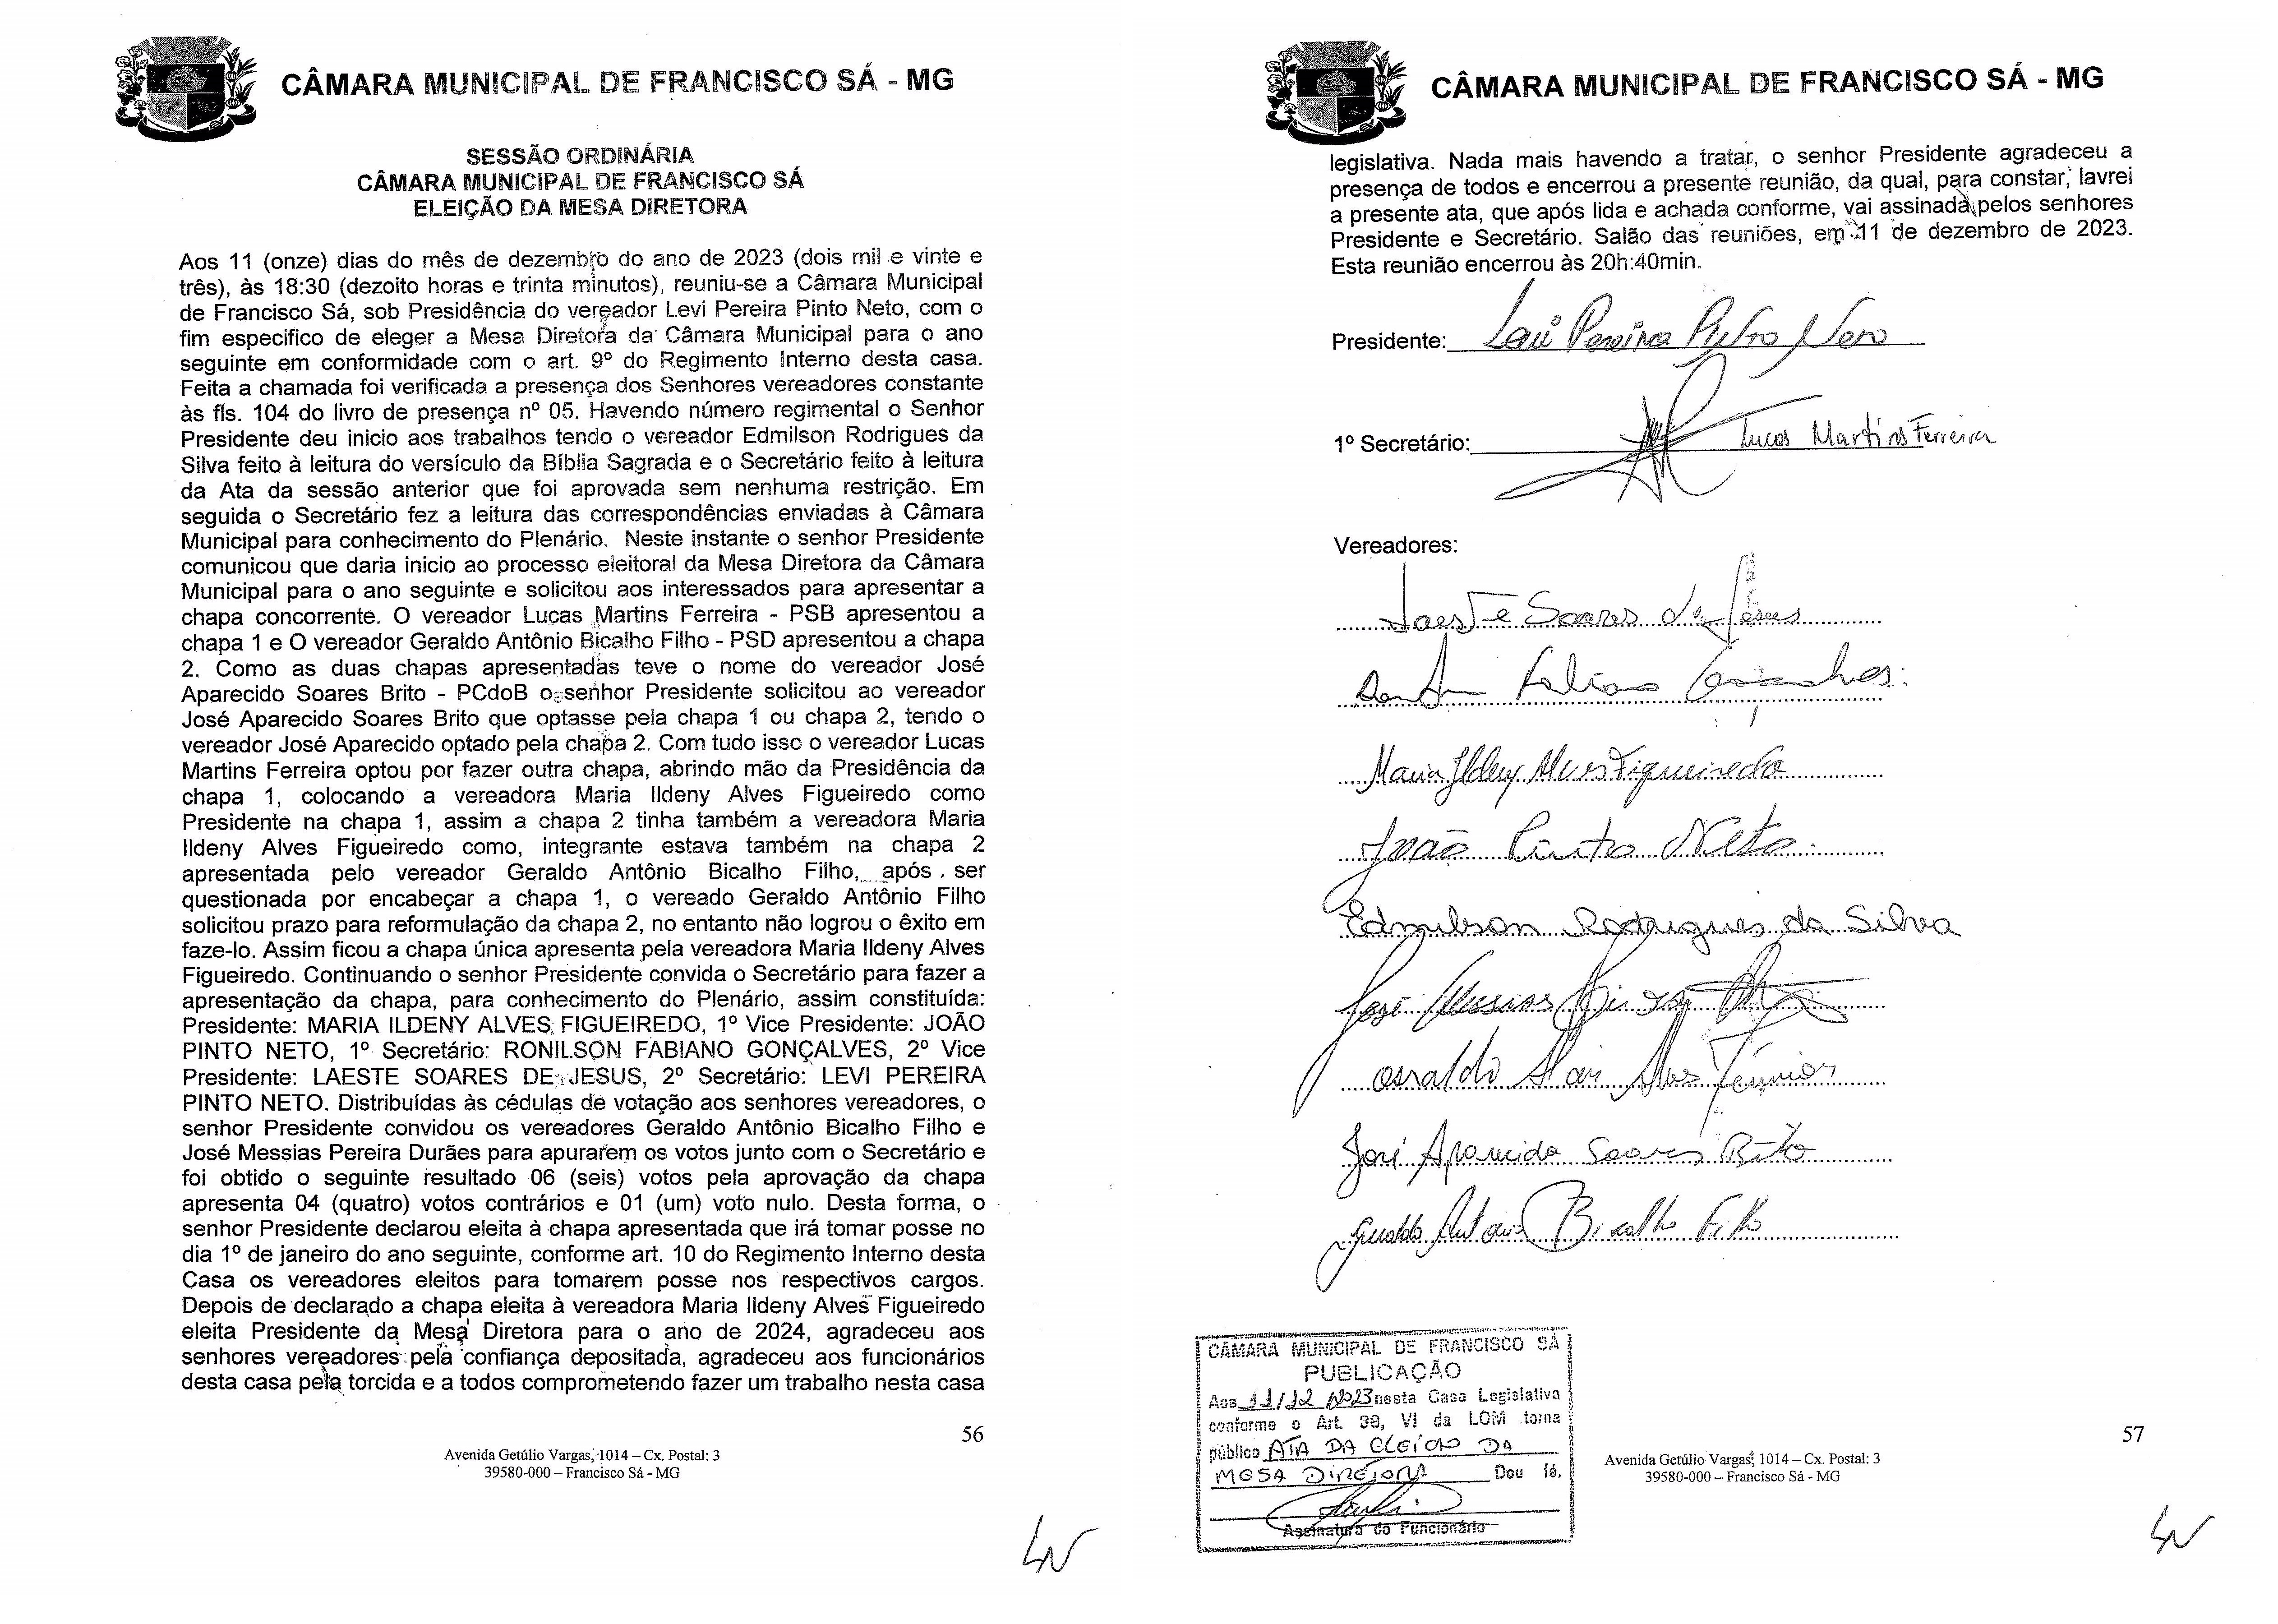 CÂMARA MUNICIPAL DE FRANCISCO SÁ - MG
SESSÃO ORDINÁRIA
CÂMARA MUNICIPAL DE FRANCISCO SÁ
ELEIÇÃO DA MESA DIRETORA
Aos 11 (onze) dias do mês de dezembro do ano de 2023 (dois mil e vinte e
três), às 18:30 (dezoito horas e trinta minutos), reuniu-se a Câmara Municipal
de Francisco Sá, sob Presidência do vereador Levi Pereira Pinto Neto, com o
fim especifico de eleger a Mesa Diretora da Câmara Municipal para o ano
seguinte em conformidade com o art. 9º do Regimento Interno desta casa.
Feita a chamada foi verificada a presença dos Senhores vereadores constante
às fls. 104 do livro de presença nº 05. Havendo número regimental o Senhor
Presidente deu inicio aos trabalhos tendo o vereador Edmilson Rodrigues da
Silva feito à leitura do versículo da Bíblia Sagrada e o Secretário feito à leitura
da Ata da sessão anterior que foi aprovada sem nenhuma restrição. Em
seguida o Secretário fez a leitura das correspondências enviadas à Câmara
Municipal para conhecimento do Plenário. Neste instante o senhor Presidente
comunicou que daria inicio ao processo eleitoral da Mesa Diretora da Câmara
Municipal para o ano seguinte e solicitou aos interessados para apresentar a
chapa concorrente. O vereador Lucas Martins Ferreira - PSB apresentou a
chapa 1 e O vereador Geraldo Antônio Bicalho Filho - PSD apresentou a chapa
2. Como as duas chapas apresentadas teve o nome do vereador José
Aparecido Soares Brito - PCdoB o senhor Presidente solicitou ao vereador
José Aparecido Soares Brito que optasse pela chapa 1 ou chapa 2, tendo o
vereador José Aparecido optado pela chapa 2. Com tudo isso o vereador Lucas
Martins Ferreira optou por fazer outra chapa, abrindo mão da Presidência da
chapa 1, colocando a vereadora Maria Ildeny Alves Figueiredo como
Presidente na chapa 1, assim a chapa 2 tinha também a vereadora Maria
Ildeny Alves Figueiredo como, integrante estava também na chapa 2
apresentada pelo vereador Geraldo Antônio Bicalho Filho, após ser
questionada por encabeçar a chapa 1, o vereado Geraldo Antônio Filho
solicitou prazo para reformulação da chapa 2, no entanto não logrou o êxito em
faze-lo. Assim ficou a chapa única apresenta pela vereadora Maria Ildeny Alves
Figueiredo. Continuando o senhor Presidente convida o Secretário para fazer a
apresentação da chapa, para conhecimento do Plenário, assim constituída:
Presidente: MARIA ILDENY ALVES FIGUEIREDO, 1º Vice Presidente: JOÃO
PINTO NETO, 1º Secretário: RONILSON FABIANO GONÇALVES, 2º Vice
Presidente: LAESTE SOARES DE JESUS, 2º Secretário: LEVI PEREIRA
PINTO NETO. Distribuídas às cédulas de votação aos senhores vereadores, o
senhor Presidente convidou os vereadores Geraldo Antônio Bicalho Filho e
José Messias Pereira Durães para apurarem os votos junto com o Secretário e
foi obtido o seguinte resultado 06 (seis) votos pela aprovação da chapa
apresenta 04 (quatro) votos contrários e 01 (um) voto nulo. Desta forma, o
senhor Presidente declarou eleita à chapa apresentada que irá tomar posse no
dia 1º de janeiro do ano seguinte, conforme art. 10 do Regimento Interno desta
Casa os vereadores eleitos para tomarem posse nos respectivos cargos.
Depois de declarado a chapa eleita à vereadora Maria Ildeny Alves Figueiredo
eleita Presidente da Mesa Diretora para o ano de 2024, agradeceu aos
senhores vereadores pela confiança depositada, agradeceu aos funcionários
desta casa pela torcida e a todos comprometendo fazer um trabalho nesta casa
56
Avenida Getúlio Vargas, 1014 – Cx. Postal: 3
39580-000 – Francisco Sá - MG
CÂMARA MUNICIPAL DE FRANCISCO SÁ - MG
legislativa. Nada mais havendo a tratar, o senhor Presidente agradeceu a
presença de todos e encerrou a presente reunião, da qual, para constar, lavrei
a presente ata, que após lida e achada conforme, vai assinada pelos senhores
Presidente e Secretário. Salão das reuniões, em 11 de dezembro de 2023.
Esta reunião encerrou às 20h:40min.
Presidente: Levi Pereira Pinto Neto
1º Secretário: Lucas Martins Ferreira
Vereadores:
Laeste Soares de Jesus
Fabiano Gonçalves
Maria Ildeny Alves Figueiredo
João Pinto Neto
Edmilson Rodrigues da Silva
José Messias
Osvaldo Alves Júnior
José Aparecido Soares Brito
Geraldo Antonio Bicalho Filho
CÂMARA MUNICIPAL DE FRANCISCO SÁ
PUBLICAÇÃO
Aos 11/12/2023 nesta Casa Legislativa
conforme o Art. 38, VI da LOM torna
público ATA DA ELEIÇÃO DA
MESA DIRETORA Dou fé.
Assinatura do Funcionário
57
Avenida Getúlio Vargas, 1014 – Cx. Postal: 3
39580-000 – Francisco Sá - MG